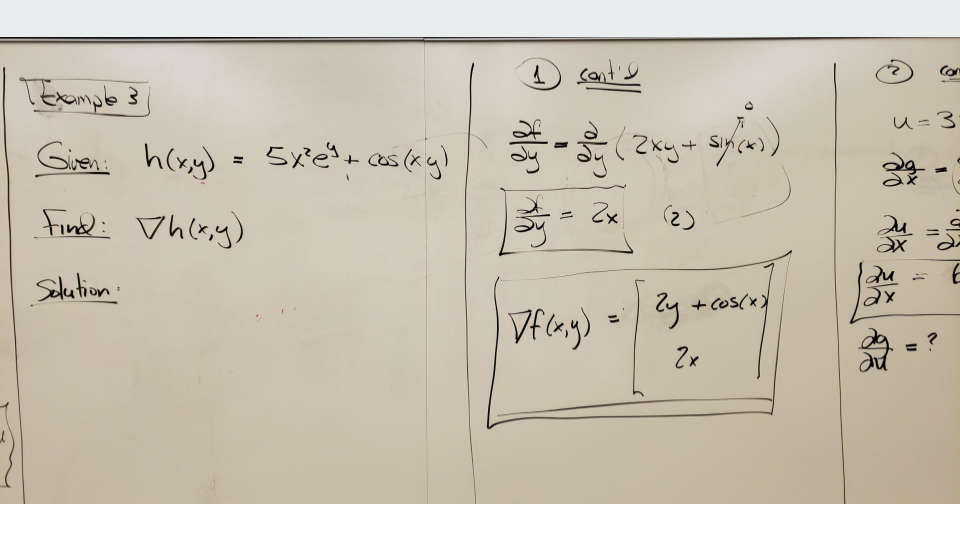 Example 3
Given: h(x,y) = 5x²e^y + cos(xy)
Find: ∇h(x,y)
Solution:
① cont'd
∂f/∂y = ∂/∂y (2xy + sin(x)) 0
∂f/∂y = 2x (2)
∇f(x,y) = [2y + cos(x)
2x]
②
u = 3
∂g/∂x =
∂u/∂x =
∂u/∂x =
∂g/∂u = ?